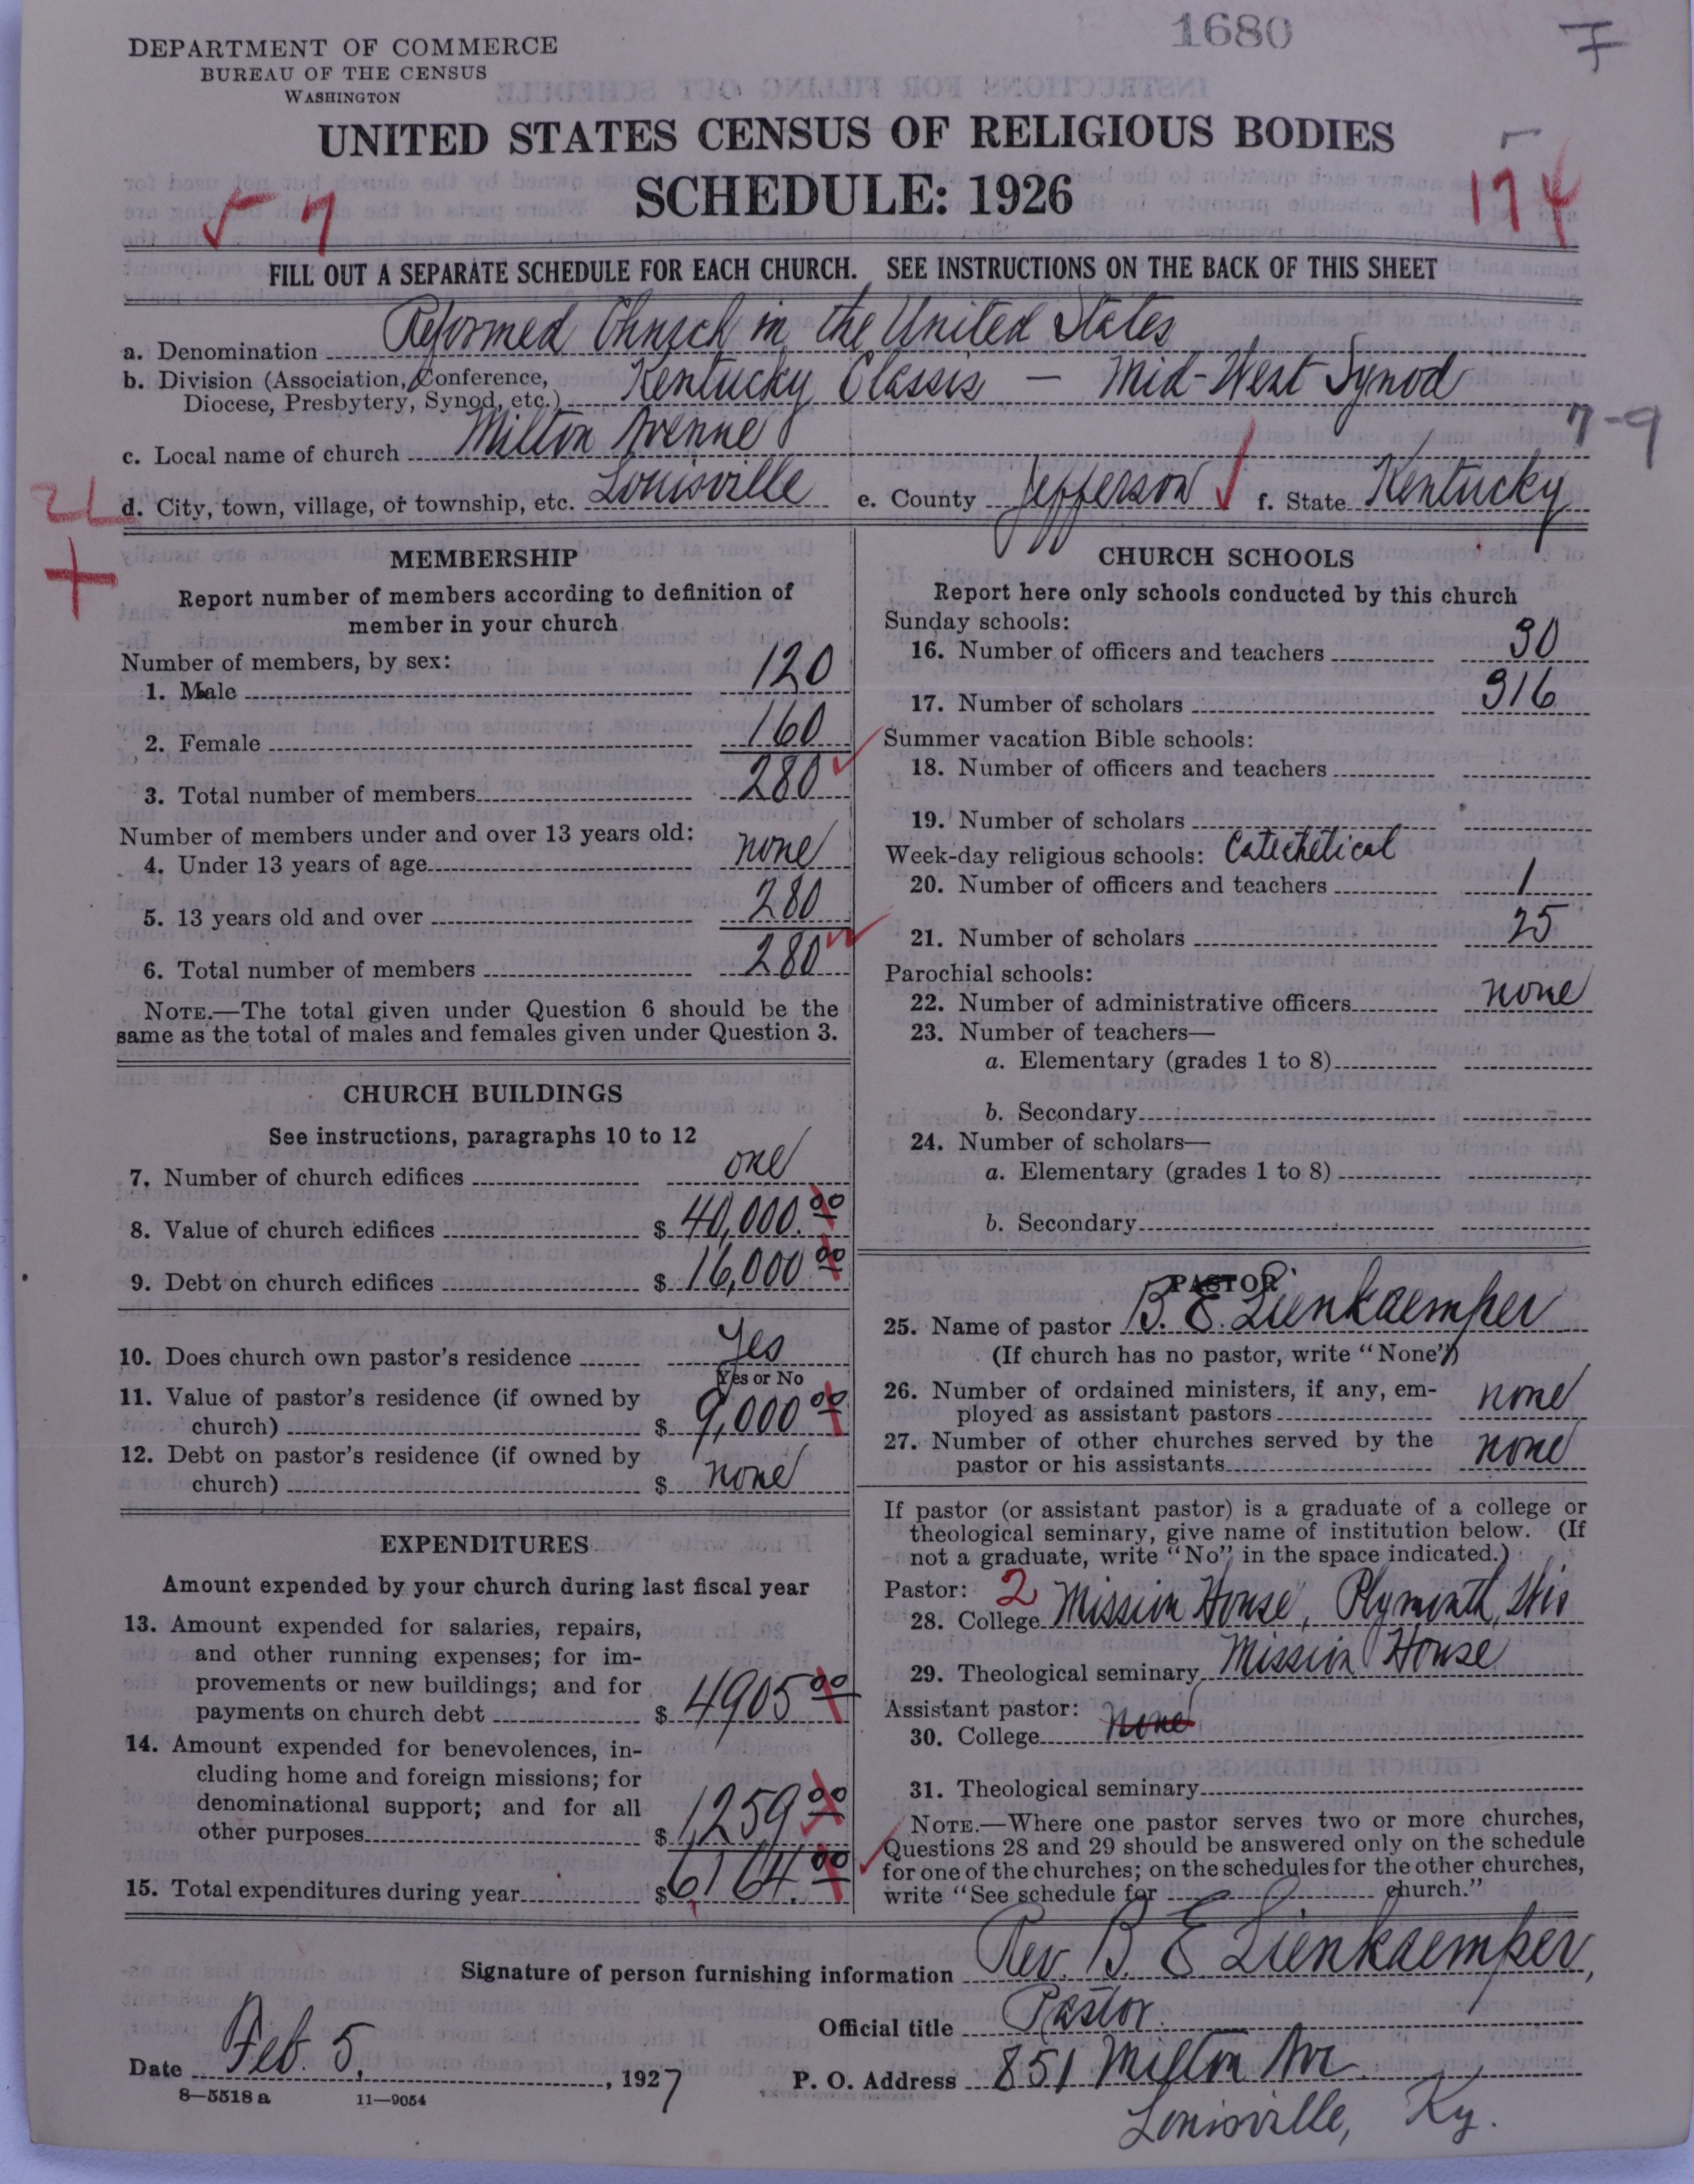 1680
DEPARTMENT OF COMMERCE
BUREAU OF THE CENSUS
WASHINGTON
UNITED STATES CENSUS OF RELIGIOUS BODIES
SCHEDULE: 1926
174
FILL OUT A SEPARATE SCHEDULE FOR EACH CHURCH. SEE INSTRUCTIONS ON THE BACK OF THIS SHEET
a. Denomination Reformed Church in the United States
b. Division (Association, Conference, Diocese, Presbytery, Synod, etc.) Kentucky Classis — Mid-West Synod
7-9
c. Local name of church Milton Avenue
d. City, town, village, or township, etc. Louisville e. County Jefferson f. State Kentucky
MEMBERSHIP
Report number of members according to definition of
member in your church
Number of members, by sex:
1. Male 120
2. Female 160
3. Total number of members 280
Number of members under and over 13 years old:
4. Under 13 years of age none
5. 13 years old and over 280
6. Total number of members 280
NOTE.—The total given under Question 6 should be the
same as the total of males and females given under Question 3.
CHURCH BUILDINGS
See instructions, paragraphs 10 to 12
7. Number of church edifices one
8. Value of church edifices $ 40,000.00
9. Debt on church edifices $ 16,000 00
10. Does church own pastor's residence Yes
Yes or No
11. Value of pastor's residence (if owned by
church) $ 9,000 00
12. Debt on pastor's residence (if owned by
church) $ none
EXPENDITURES
Amount expended by your church during last fiscal year
13. Amount expended for salaries, repairs,
and other running expenses; for im-
provements or new buildings; and for
payments on church debt $ 4905 00
14. Amount expended for benevolences, in-
cluding home and foreign missions; for
denominational support; and for all
other purposes $ 1,259 00
15. Total expenditures during year $ 6164.00
CHURCH SCHOOLS
Report here only schools conducted by this church
Sunday schools:
16. Number of officers and teachers 30
17. Number of scholars 316
Summer vacation Bible schools:
18. Number of officers and teachers
19. Number of scholars
Week-day religious schools: Catechetical
20. Number of officers and teachers 1
21. Number of scholars 25
Parochial schools:
22. Number of administrative officers none
23. Number of teachers—
a. Elementary (grades 1 to 8)
b. Secondary
24. Number of scholars—
a. Elementary (grades 1 to 8)
b. Secondary
PASTOR
25. Name of pastor B. E. Lienkaemper
(If church has no pastor, write "None")
26. Number of ordained ministers, if any, em-
ployed as assistant pastors none
27. Number of other churches served by the
pastor or his assistants none
If pastor (or assistant pastor) is a graduate of a college or
theological seminary, give name of institution below. (If
not a graduate, write "No" in the space indicated.)
Pastor: 2
28. College Mission House, Plymouth, Wis
29. Theological seminary Mission House
Assistant pastor:
30. College None
31. Theological seminary
NOTE.—Where one pastor serves two or more churches,
Questions 28 and 29 should be answered only on the schedule
for one of the churches; on the schedules for the other churches,
write "See schedule for church."
Signature of person furnishing information Rev. B. E. Lienkaemper,
Official title Pastor.
Date Feb. 5, 1927 P. O. Address 851 Milton Ave
8—5518 a 11—9054
Louisville, Ky.